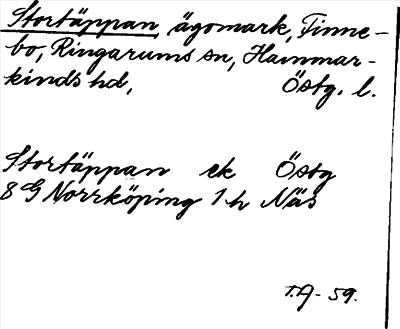 Stortäppan, ägomark, Finne-
bo, Ringarums sn, Hammar-
kinds hd, Östg. l.
Stortäppan ek Östg
8 G Norrköping 1 h Näs
T.A - 59.